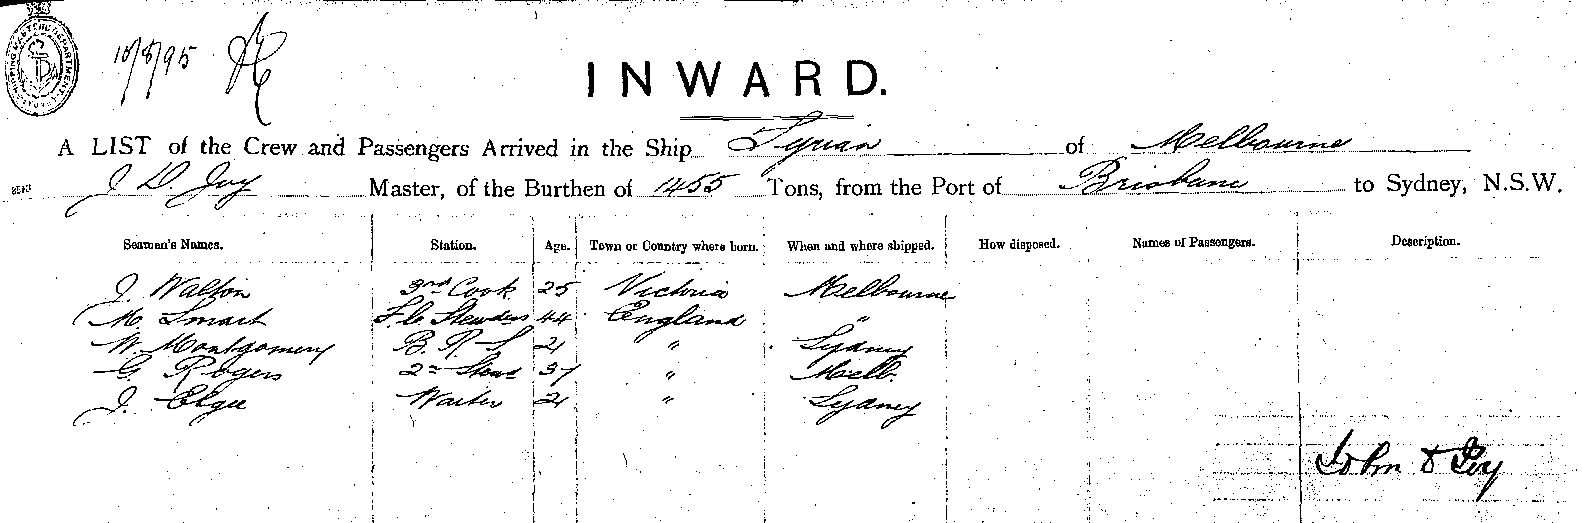 10/8/95
INWARD.
A LIST of the Crew and Passengers Arrived in the Ship Tyrian of Melbourne
J D. Joy Master, of the Burthen of 1455 Tons, from the Port of Brisbane to Sydney, N.S.W.
Seamen's Names. Station. Age. Town or Country where born. When and where shipped. How disposed. Names of Passengers. Description.
J. Walton 3rd Cook 25 Victoria Melbourne
M. Smart F.C. Stewdess 44 England "
W. Montgomery B. R. S 21 " Sydney
G. Rogers 2nd Stewd 37 " Melb.
J. Elgee Waiter 21 " Sydney
John D Joy